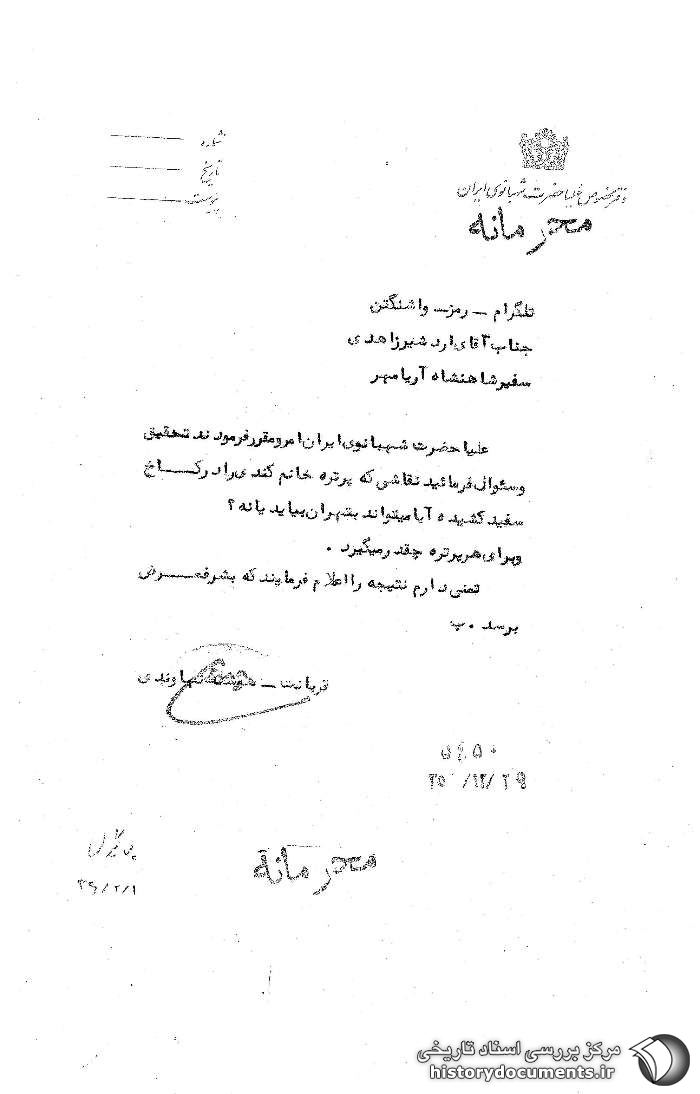 شماره
تاریخ
پیوست
دفتر مخصوص علیاحضرت شهبانوی ایران
محرمانه
تلگرام ــ رمزــ واشنگتن
جناب آقای اردشیرزاهدی
سفیرشاهنشاه آریامهر
علیاحضرت شهبانوی ایران امرومقررفرمودند تحقیق
وسئوال فرمائید نقاشی که پرتره خانم کندی رادرکـــاخ
سفید کشیده آیامیتواند بتهران بیاید یانه ؟
وبرای هرپرتره چقدرمیگیرد .
تمنی دارم نتیجه رااعلام فرمایند که بشرفعـــرض
برسد . پ
قربانت ــ هوشنگ نهاوندی
۱۲/۲۹/
محرمانه
۳۶/۲/۱
مرکز بررسی اسناد تاریخی
historydocuments.ir